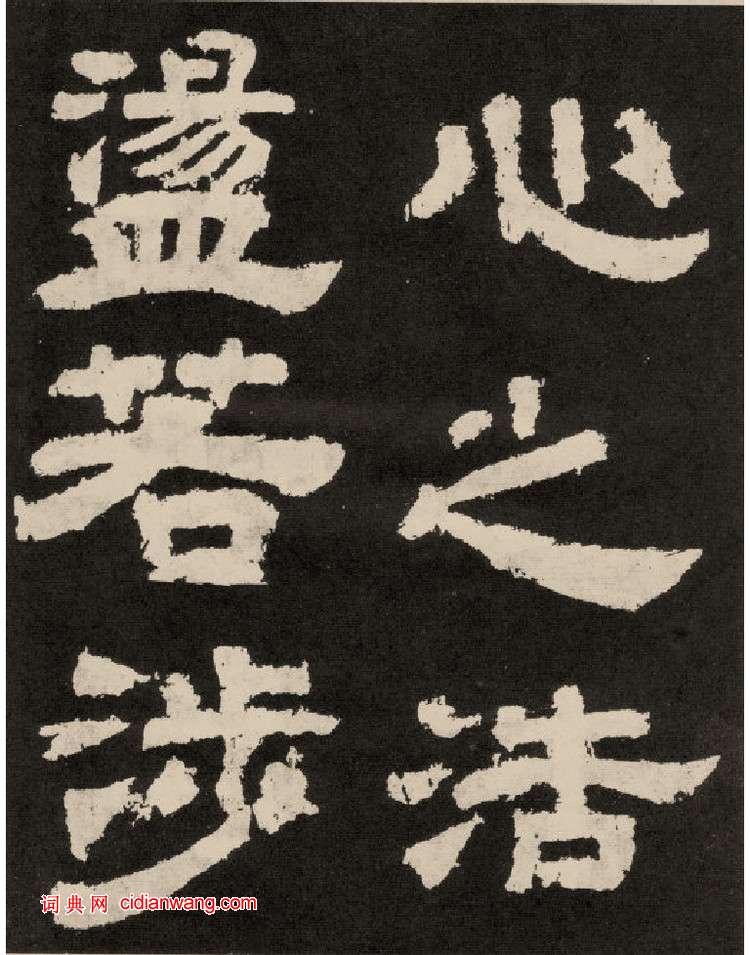 心之浩
盪若涉
词典网 cidianwang.com